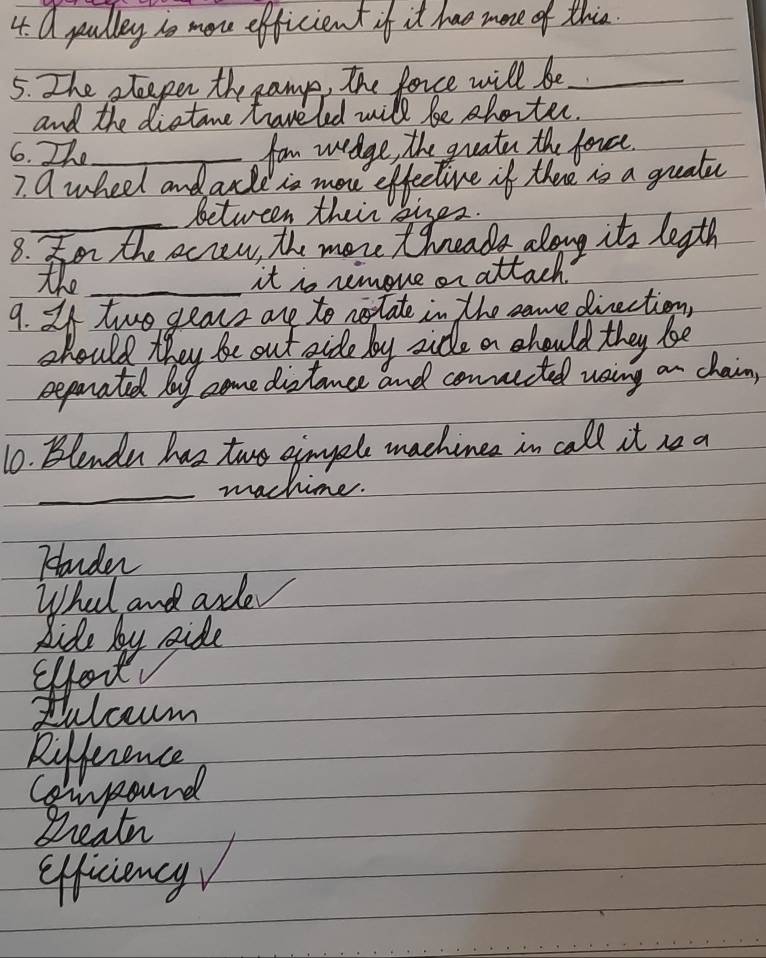 4. A pulley is more efficient if it has more of this.
5. The steeper the ramp, the force will be ________
and the distane traveled will be shorter.
6. The ________ fan wedge, the greater the force.
7. A wheel and axle is more effective if there is a greater
________ between their sizes.
8. For the screw, the more threads along its legth
the ________ it is remove or attach.
9. If two gears are to rotate in the same direction,
should they be out side by side or should they be
separated by some distance and connected using an chain,
10. Blender has two simple machines in call it is a
________ machine.
Harder
Wheel and axle ✓
Side by side
Effort ✓
Fulcrum
Difference
Compound
Greater
Efficiency ✓